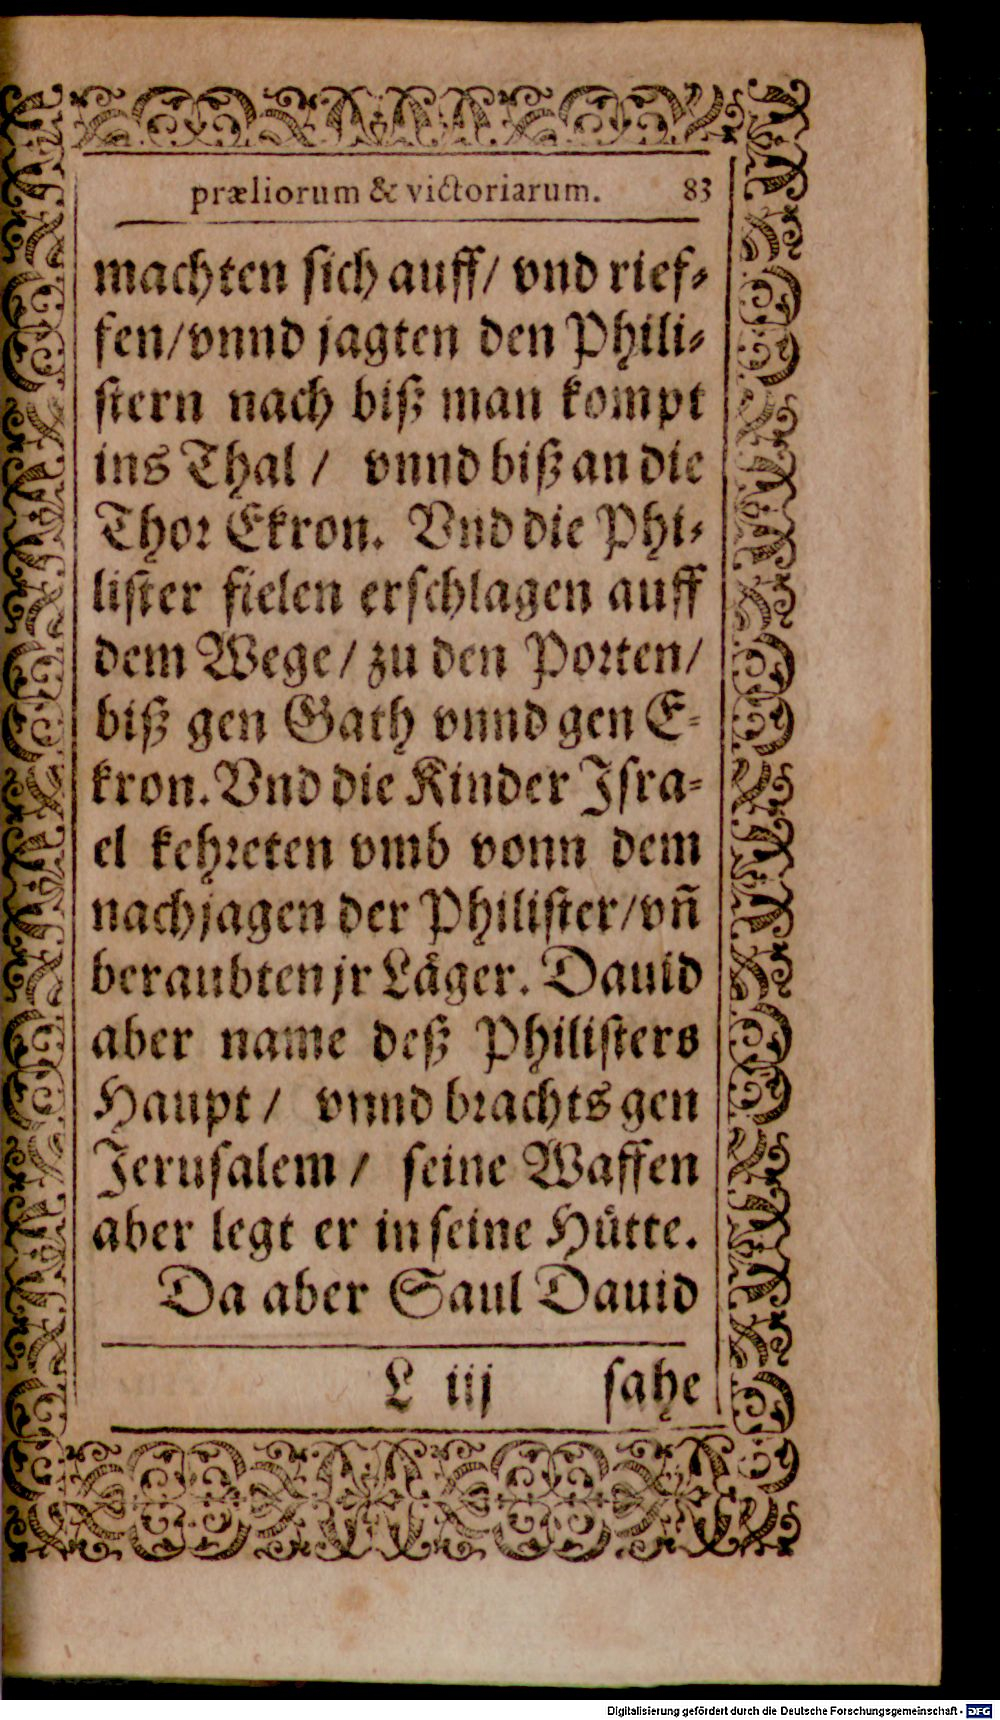 præliorum & victoriarum. 83
machten sich auff/ vnd rief⸗
fen/vnnd jagten den Phili⸗
stern nach biß man kompt
ins Thal / vnnd biß an die
Thor Ekron. Vnd die Phi⸗
lister fielen erschlagen auff
dem Wege/ zu den Porten/
biß gen Gath vnnd gen E⸗
kron. Vnd die Kinder Isra⸗
el kehreten vmb vonn dem
nachjagen der Philister/vñ
beraubten jr Läger. Dauid
aber name deß Philisters
Haupt / vnnd brachts gen
Jerusalem / seine Waffen
aber legt er in seine Hütte.
Da aber Saul Dauid
L iij sahe
Digitalisierung gefördert durch die Deutsche Forschungsgemeinschaft - DFG